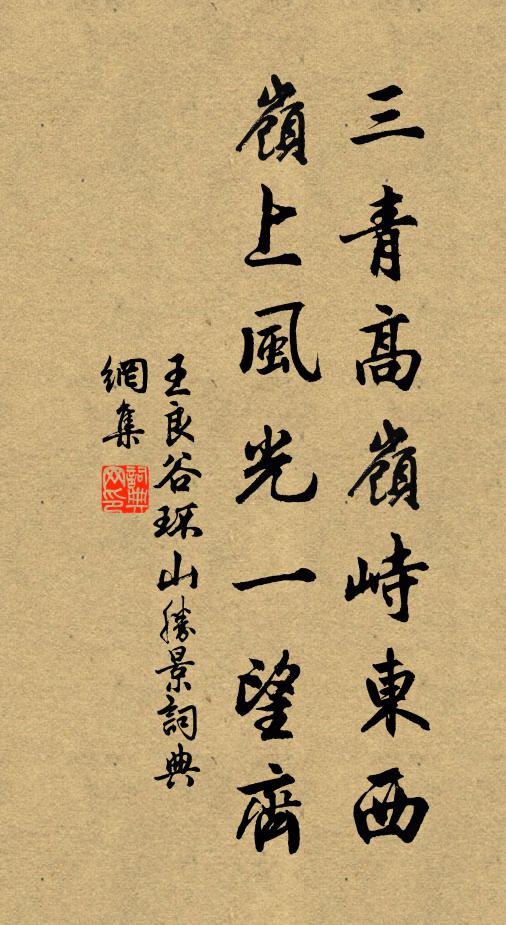 三青高嶺峙東西
嶺上風光一望齊
王良谷環山勝景詞典
網集
詞典網印